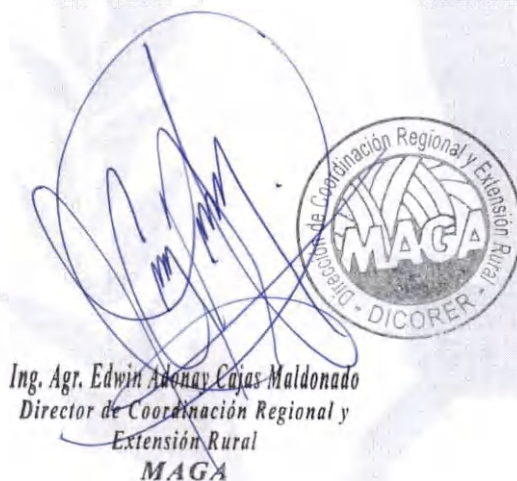 Dirección de Coordinación Regional y Extensión Rural
MAGA
- DICORER -
Ing. Agr. Edwin Adonay Cajas Maldonado
Director de Coordinación Regional y
Extensión Rural
MAGA